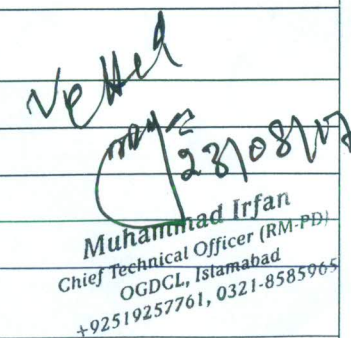 Vetted
23/08/17
Muhammad Irfan
Chief Technical Officer (RM-PD)
OGDCL, Islamabad
+92519257761, 0321-8585965